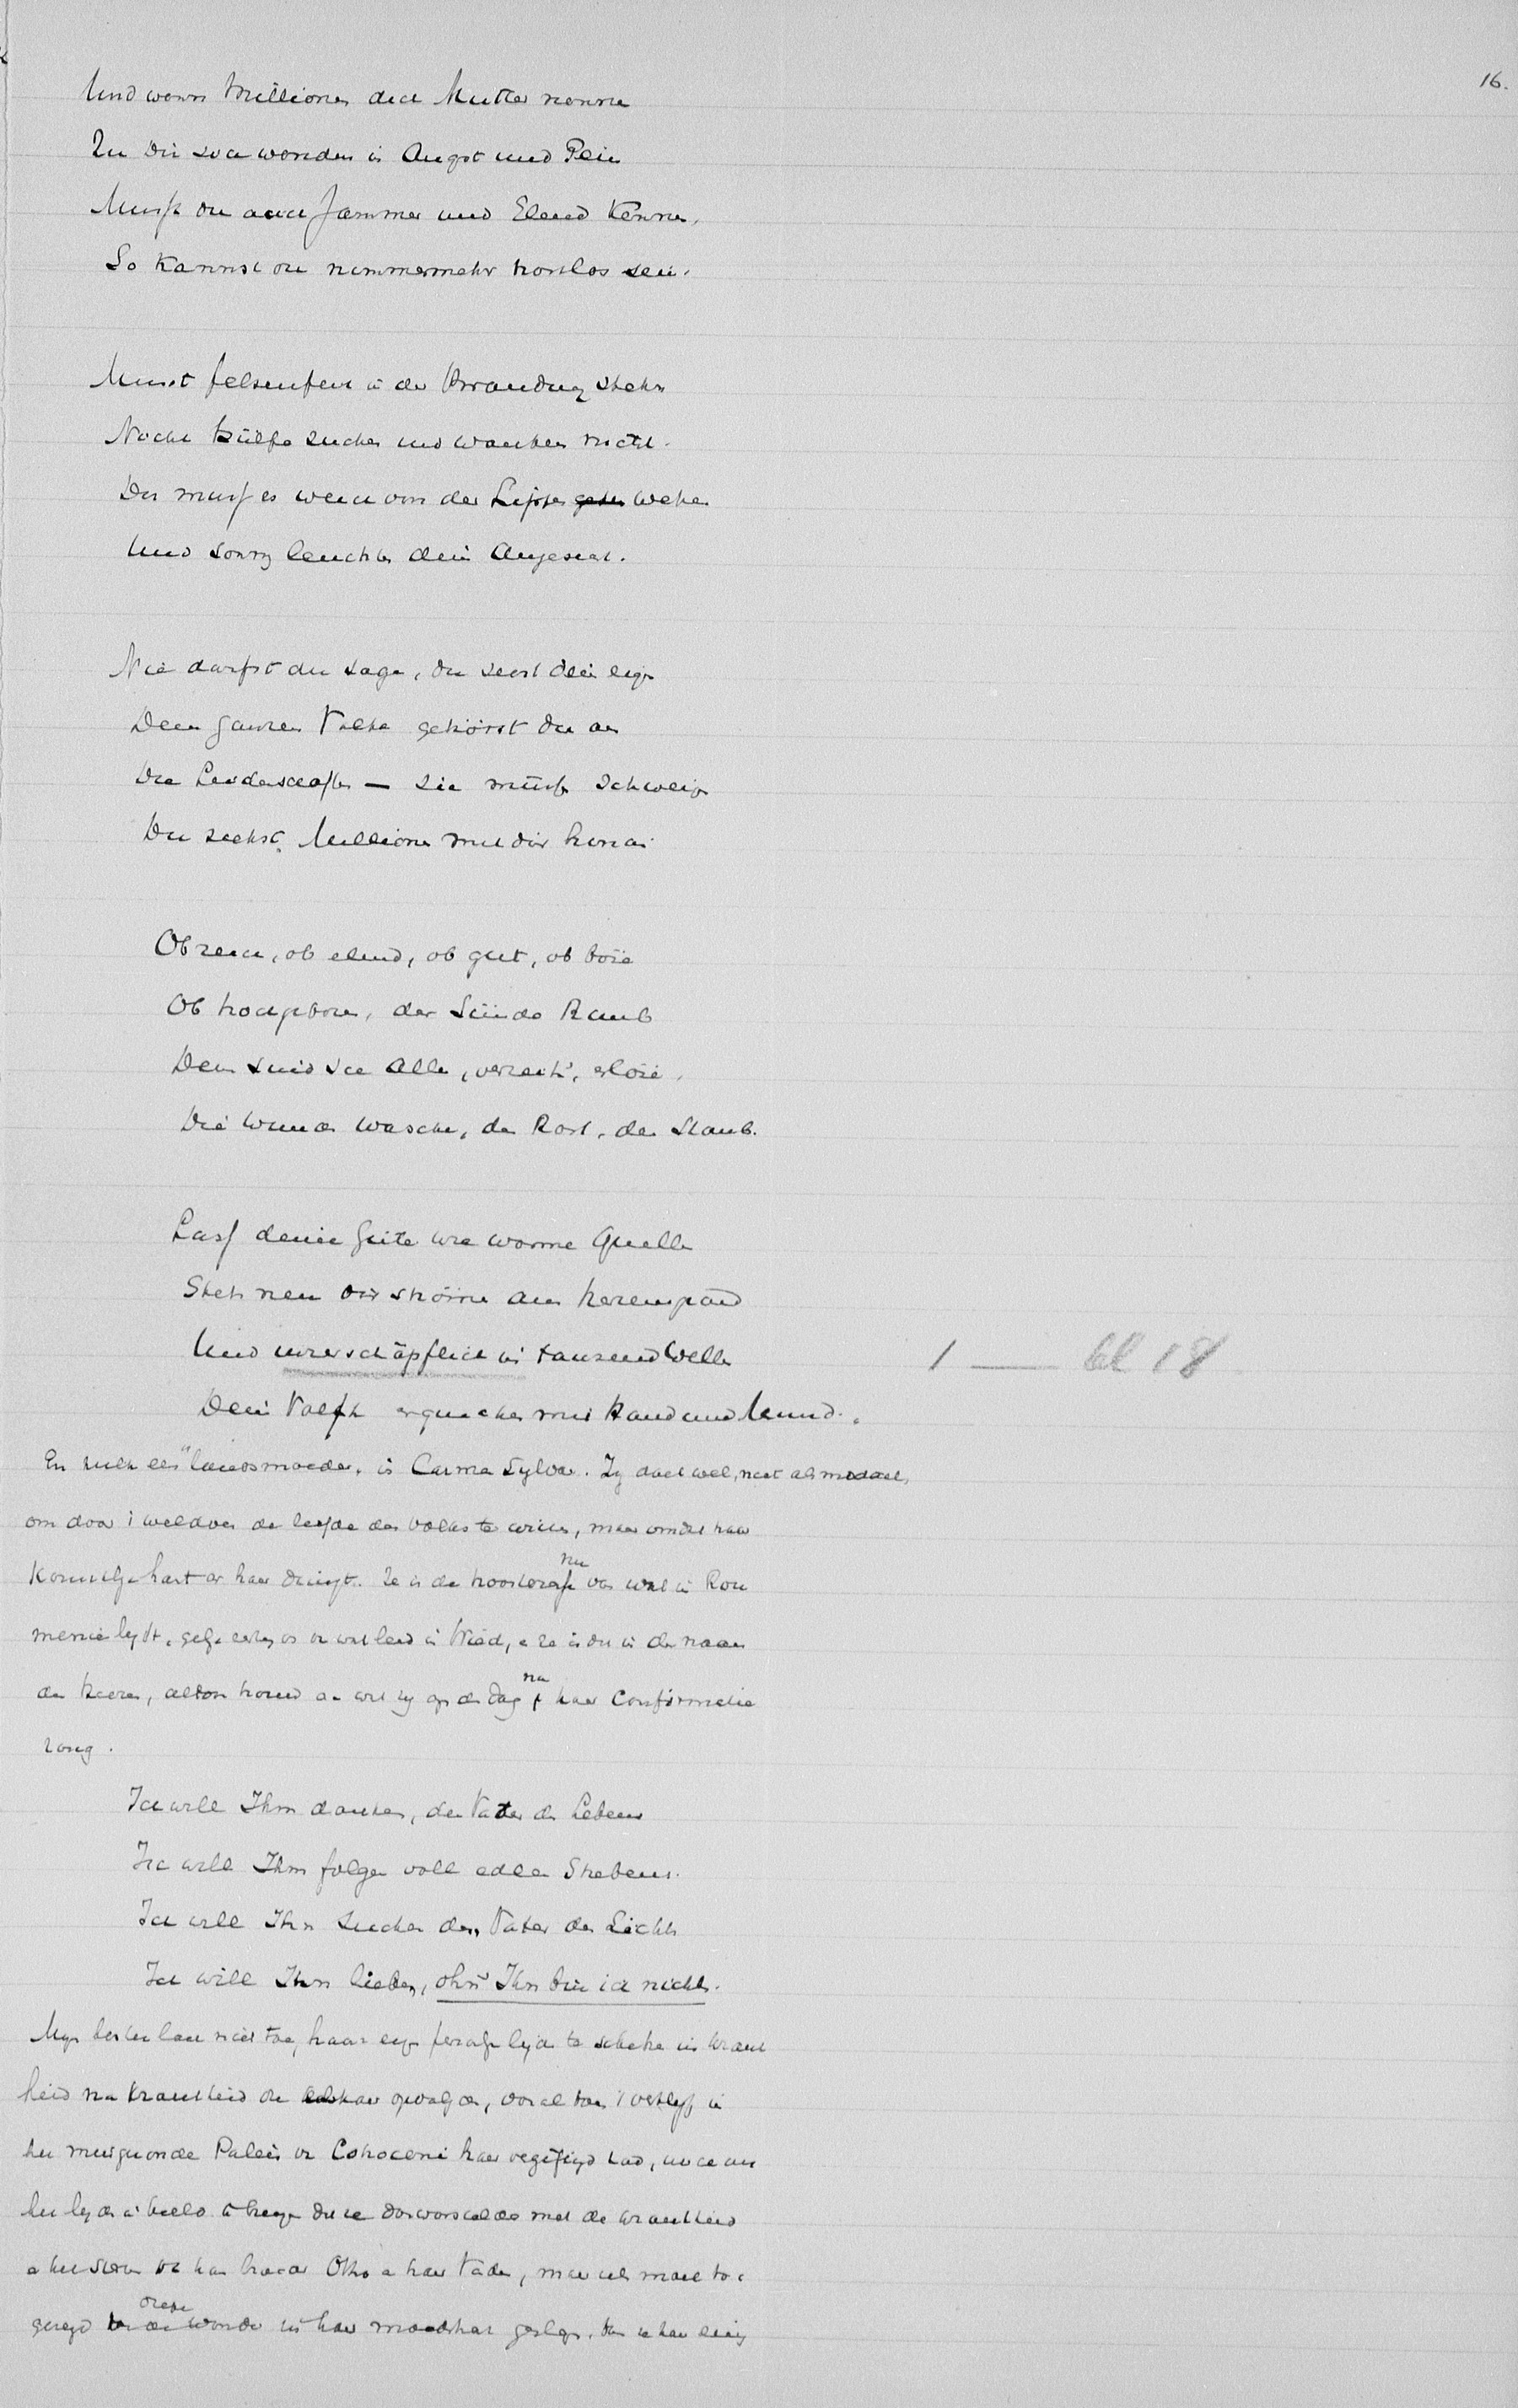 16.
Und wenn Millionen dich Mutter nennen
Zu dir sich wenden in Angst und Pein
Musst du auch Jammer und Elend kennen,
So kannst du nimmermehr trostlos sein.
Musst felsenfest in der Brandung stehn
Nicht Hülfe suchen und wanken nicht.
Dir muss es weich von der Lippe wehen
Und sonnig leuchten dein Angesicht.
Nie darfst du sagen, du seist dein eigen
Dem ganzen Volke gehörst du an
Die Leidenschaften — sie müssen schweigen
Du ziehst Millionen mit dir hinan
Ob reich, ob elend, ob gut, ob böse
Ob hochgeboren, der Sünde Raub
Dein sind sie Alle, verzeih', erlöse,
Die Wunden wasche, den Rost, den Staub.
Lass deine Güte wie warme Quellen
Stets neu dir strömen aus Herzensgrund
Und unerschöpflich in tausend Wellen
1 — bl 18
Dein Volk erquicken mit Hand und Mund.
En zulk een "landsmoeder" is Carmen Sylva. Zy doet wel, niet als middel,
om door 't weldoen de liefde des volks te winnen, maar omdat haar
Koninklyk hart er haar dringt. Ze is de troosteres nu van wat in Rou
menie lydt, gelyk eertyds van wat leed in Wied, en ze is dit in den naam
des Heeren, altoos trouw aan wat zy op den dag na haar Confirmatie
zong.
Ich will Ihm danken, dem Vater des Lebens
Ich will Ihm folgen voll edlen Strebens.
Ich will Ihn suchen den Vater des Lichts
Ich will Ihn lieben, ohn' Ihn bin ich nichts.
Myn bestek laat niet toe, haar eigen persoonlyk lyden te schetsen in krank
heid na krankheid die haar overvolgden, vooral toen 't verblyf in
het Paleis van Cotroceni haar vergiftigd had, noch om
het lyden in beeld te brengen dat ze doorworstelde met de krankheid
en het sterven van haar broeder Otto en haar Vader, maar wel moet toe
gezegd deze wonde in haar moederhart geslagen, toen ze haar eenig